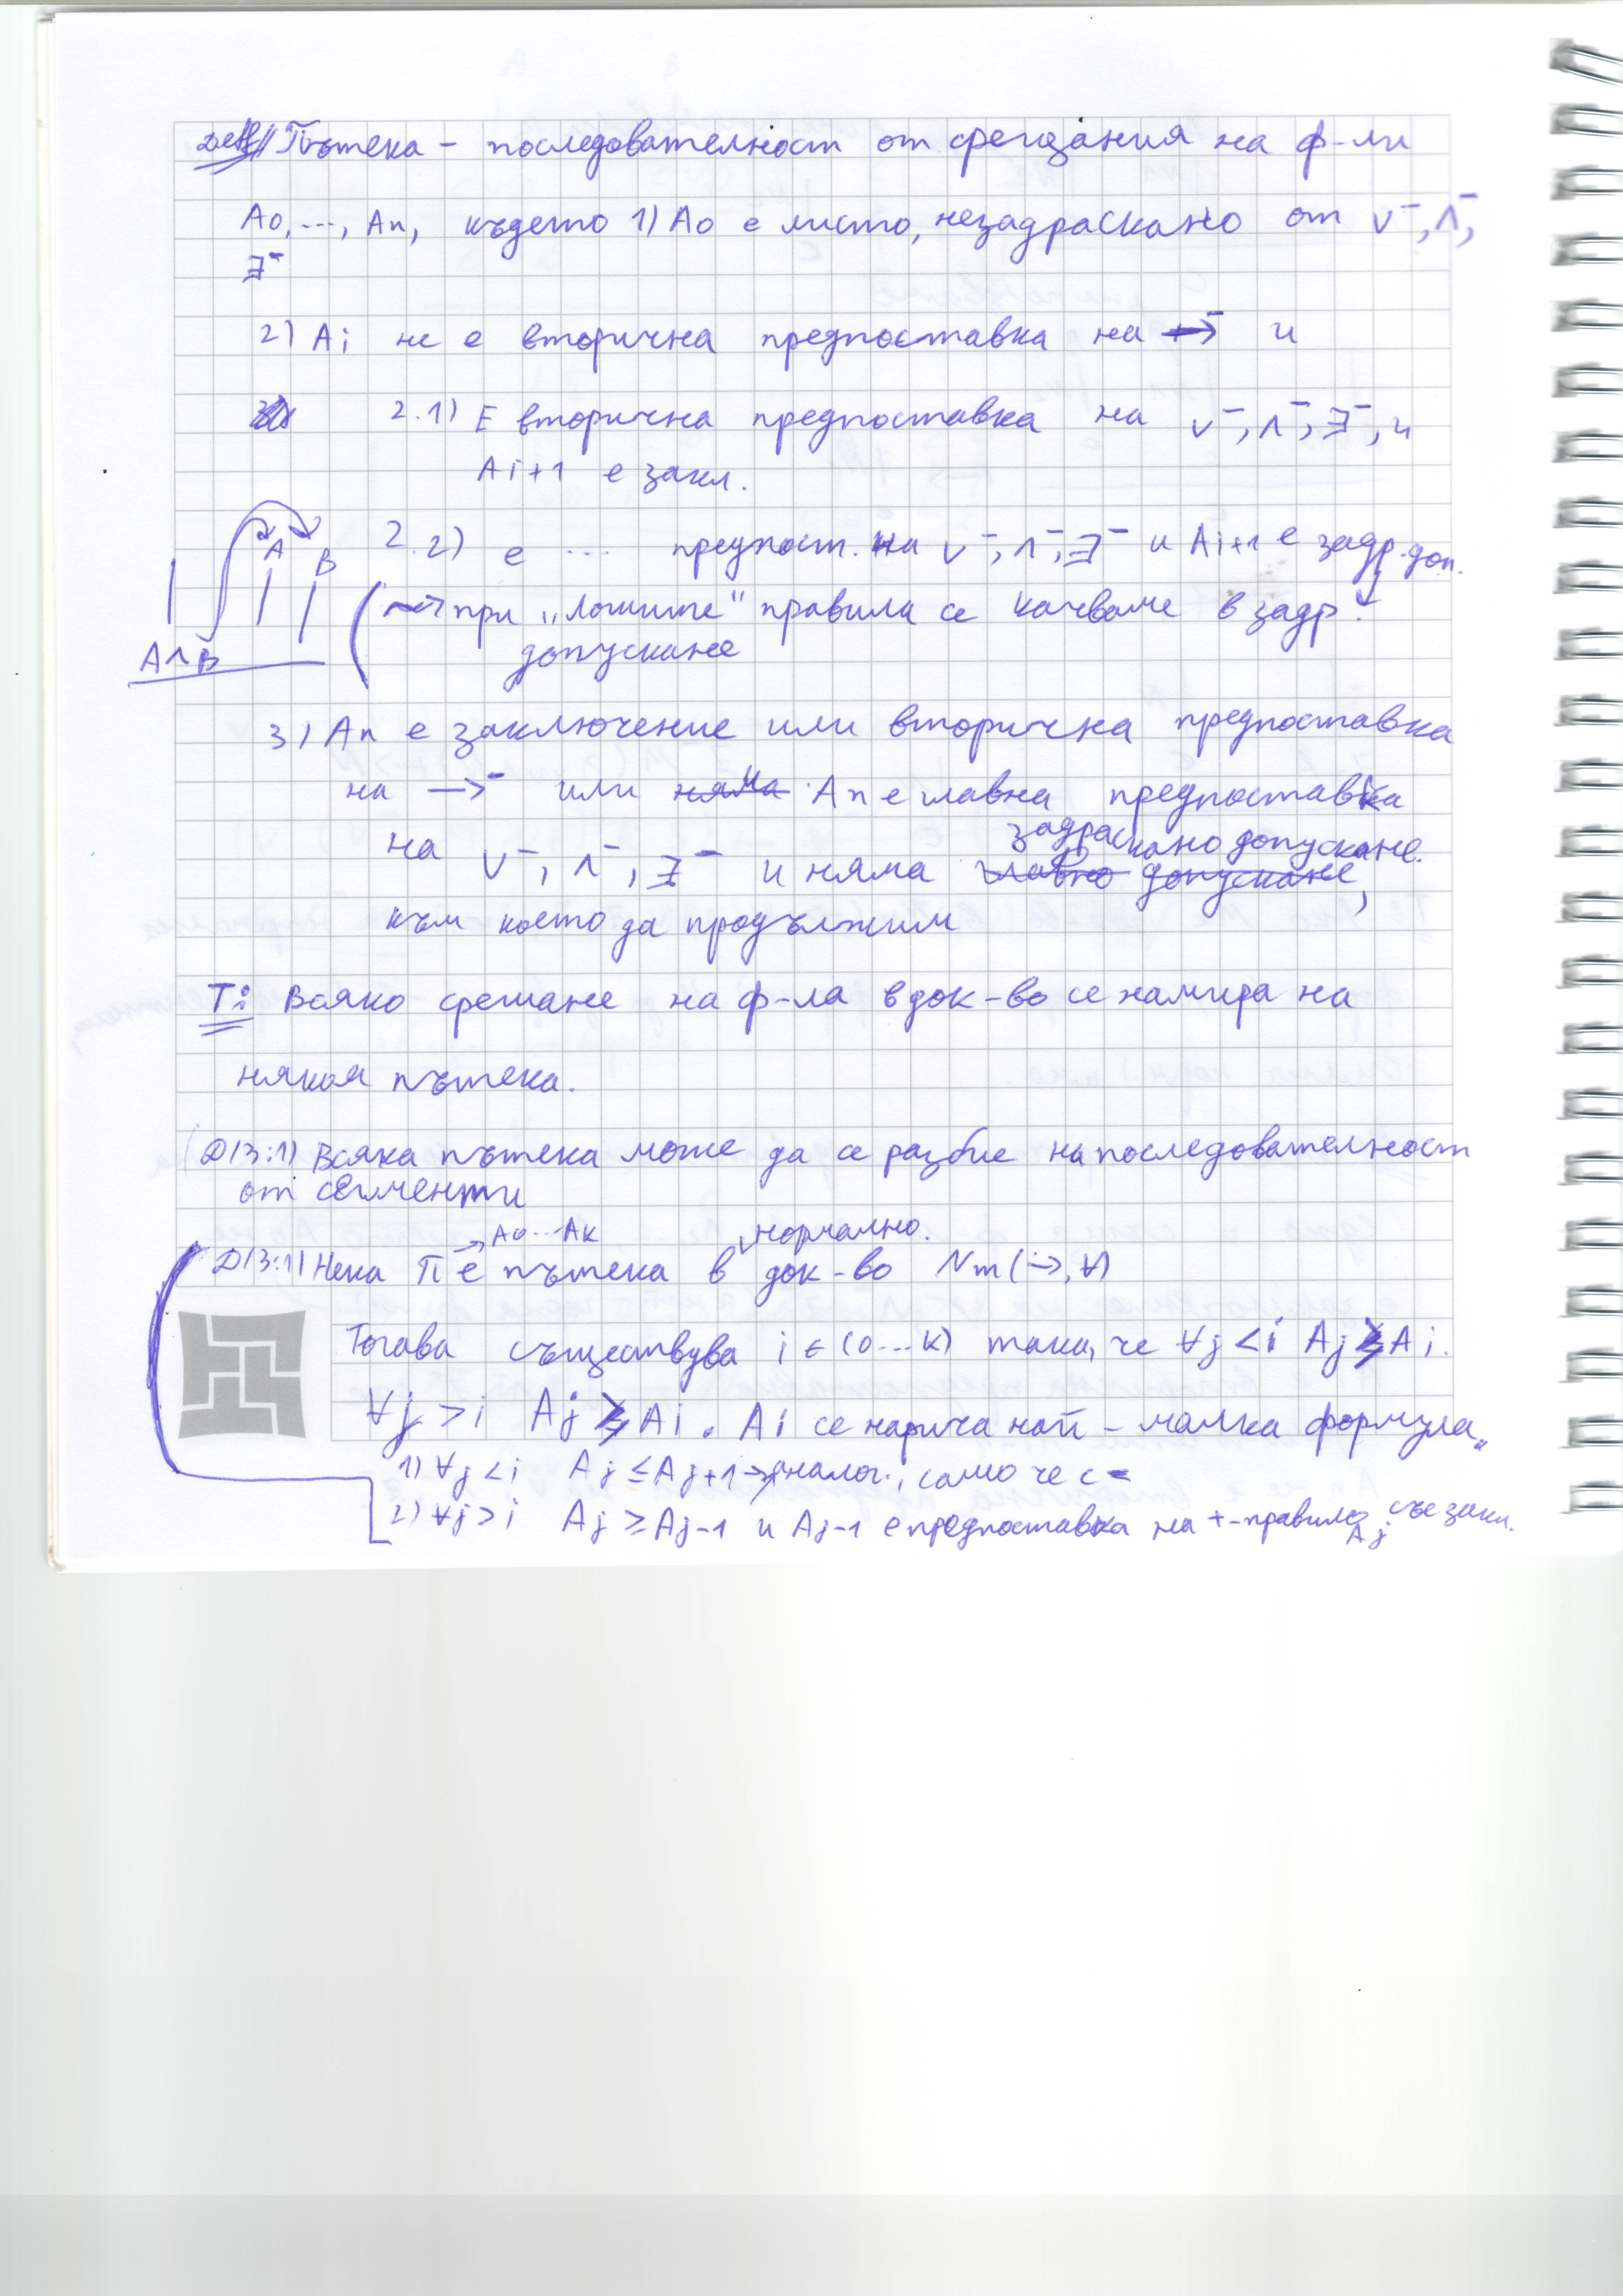 Деф// Пътека – последователност от срещания на ф-ли
A0, ..., An, където 1) A0 е листо, незадраскано от ∨⁻, ∧⁻,
∃⁻
2) Ai не е вторична предпоставка на →⁻ и
2.1) Е вторична предпоставка на ∨⁻, ∧⁻, ∃⁻, и
Ai+1 е закл.
2.2) е ... предпост. на ∨⁻, ∧⁻, ∃⁻ и Ai+1 е задр. доп.
A B
A∧B
(⇝ при „лошите" правила се качваме в задр.
допускане
3) An е заключение или вторична предпоставка
на →⁻ или няма An е главна предпоставка
на ∨⁻, ∧⁻, ∃⁻ и няма главно допускане,
задраскано допускане.
към което да продължим
T: Всяко срещане на ф-ла в док-во се намира на
някоя пътека.
(Д/3:1) Всяка пътека може да се разбие на последователност
от сегменти
Д/3:1) Нека π е пътека в док-во Nm(→,∀)
→ A0...Ak нормално.
Тогава съществува i ∈ (0...k) така, че ∀j<i Aj ≥ Ai.
∀j>i Aj ≥ Ai. Ai се нарича най-малка формула
1) ∀j<i Aj ≤ Aj+1 → аналог., само че с -
2) ∀j>i Aj ≥ Aj-1 и Aj-1 е предпоставка на +-правило със закл.
Aj